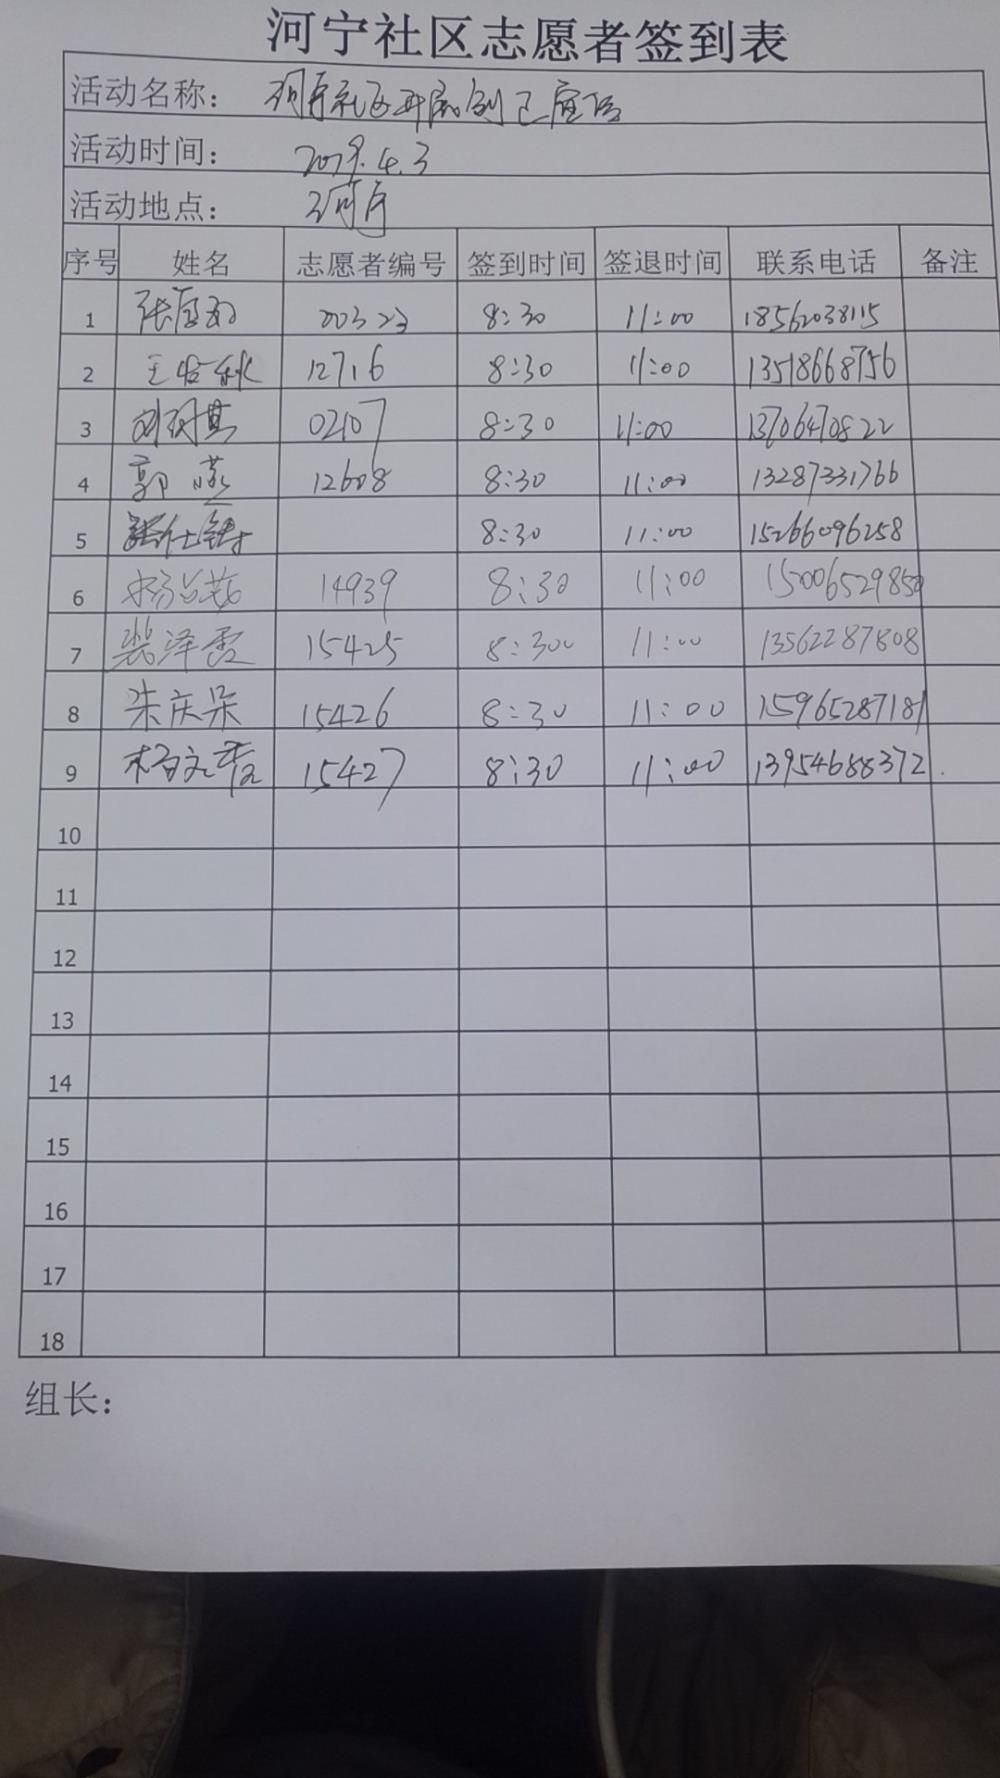 河宁社区志愿者签到表
活动名称： 河宁社区开展创卫宣传
活动时间： 2019.4.3
活动地点： 河宁
序号 姓名 志愿者编号 签到时间 签退时间 联系电话 备注
1 00323 8:30 11:00 18562038115
2 12716 8:30 11:00 13518668756
3 02107 8:30 11:00 13706470822
4 郭燕 12608 8:30 11:00 13287331766
5 8:30 11:00 15266096258
6 14939 8:30 11:00 15006529850
7 裴泽霞 15425 8:30 11:00 13562287808
8 朱庆呆 15426 8:30 11:00 15965287181
9 15427 8:30 11:00 13954688372
10
11
12
13
14
15
16
17
18
组长：